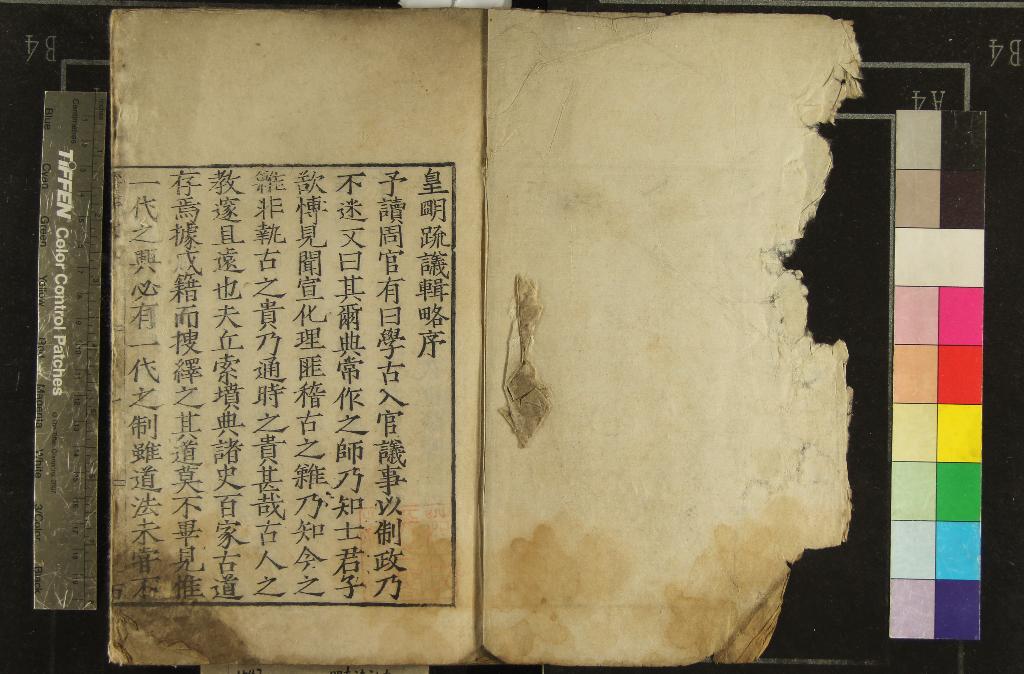 皇明疏議輯略序
予讀周官有曰學古入官議事以制政乃
不迷又曰其爾典常作之師乃知士君子
欲愽見聞宣化理匪稽古之難乃知今之
難非執古之貴乃通時之貴甚哉古人之
教邃且遠也夫丘索墳典諸史百家古道
存焉據成籍而搜繹之其道莫不畢見惟
一代之興必有一代之制雖道法未甞不
TIFFEN Color Control Patches
Blue
Cyan
Green
Yellow
Red
Magenta
White
3/Color
Black
B4
B4
A4